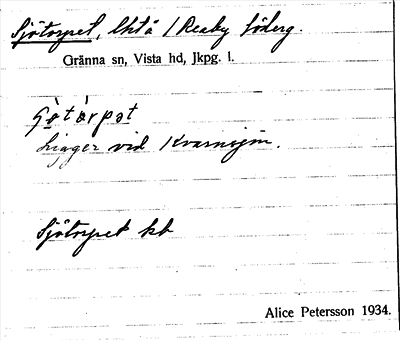 Sjötorpet, lht å 1 Reaby Söderg.
Gränna sn, Vista hd, Jkpg. l.
Ligger vid Kvarnsjön.
Sjötorpet kb
Alice Petersson 1934.